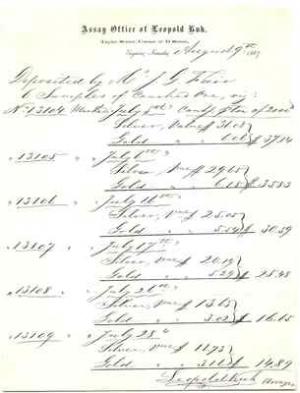 Assay Office of Leopold Kuh.
Taylor Street, Corner of D Street,
Virginia, Nevada, August 9th 1887
Deposited by Mr J. G.
6 Samples of Crushed Ore, viz:
No 13104 Marked July Contg pr ton of 2000
Silver, Value $ 31.03
Gold " " 6.01 $ 37.04
" 13105 " July
Silver, Value $ 29.65
Gold " " 6.18 $ 35.83
" 13106 " July 16th
Silver, Value $ 25.05
Gold " " 5.54 $ 30.59
" 13107 " July 17th
Silver, Value $ 20.19
Gold " " 5.29 $ 25.48
" 13108 " July 26th
Silver, Value $ 13.13
Gold " " 3.02 $ 16.15
" 13109 " July 28th
Silver, Value $ 11.73
Gold " " 3.16 $ 14.89
Leopold Kuh Assayer